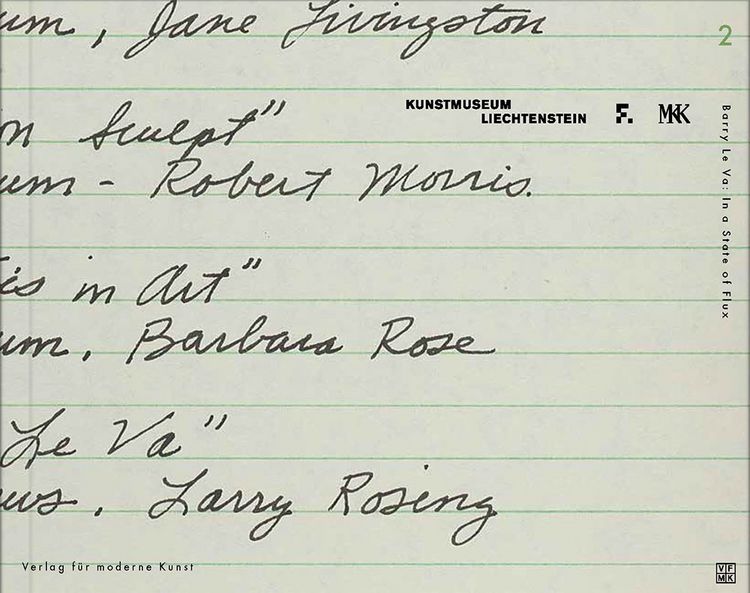 um, Jane Livingston
2
KUNSTMUSEUM
LIECHTENSTEIN
F. MKK
Barry Le Va: In a State of Flux
on Sculpt"
um - Robert Morris.
is in Art"
um, Barbara Rose
Le Va"
ws, Larry Rosing
Verlag für moderne Kunst
VF
MK